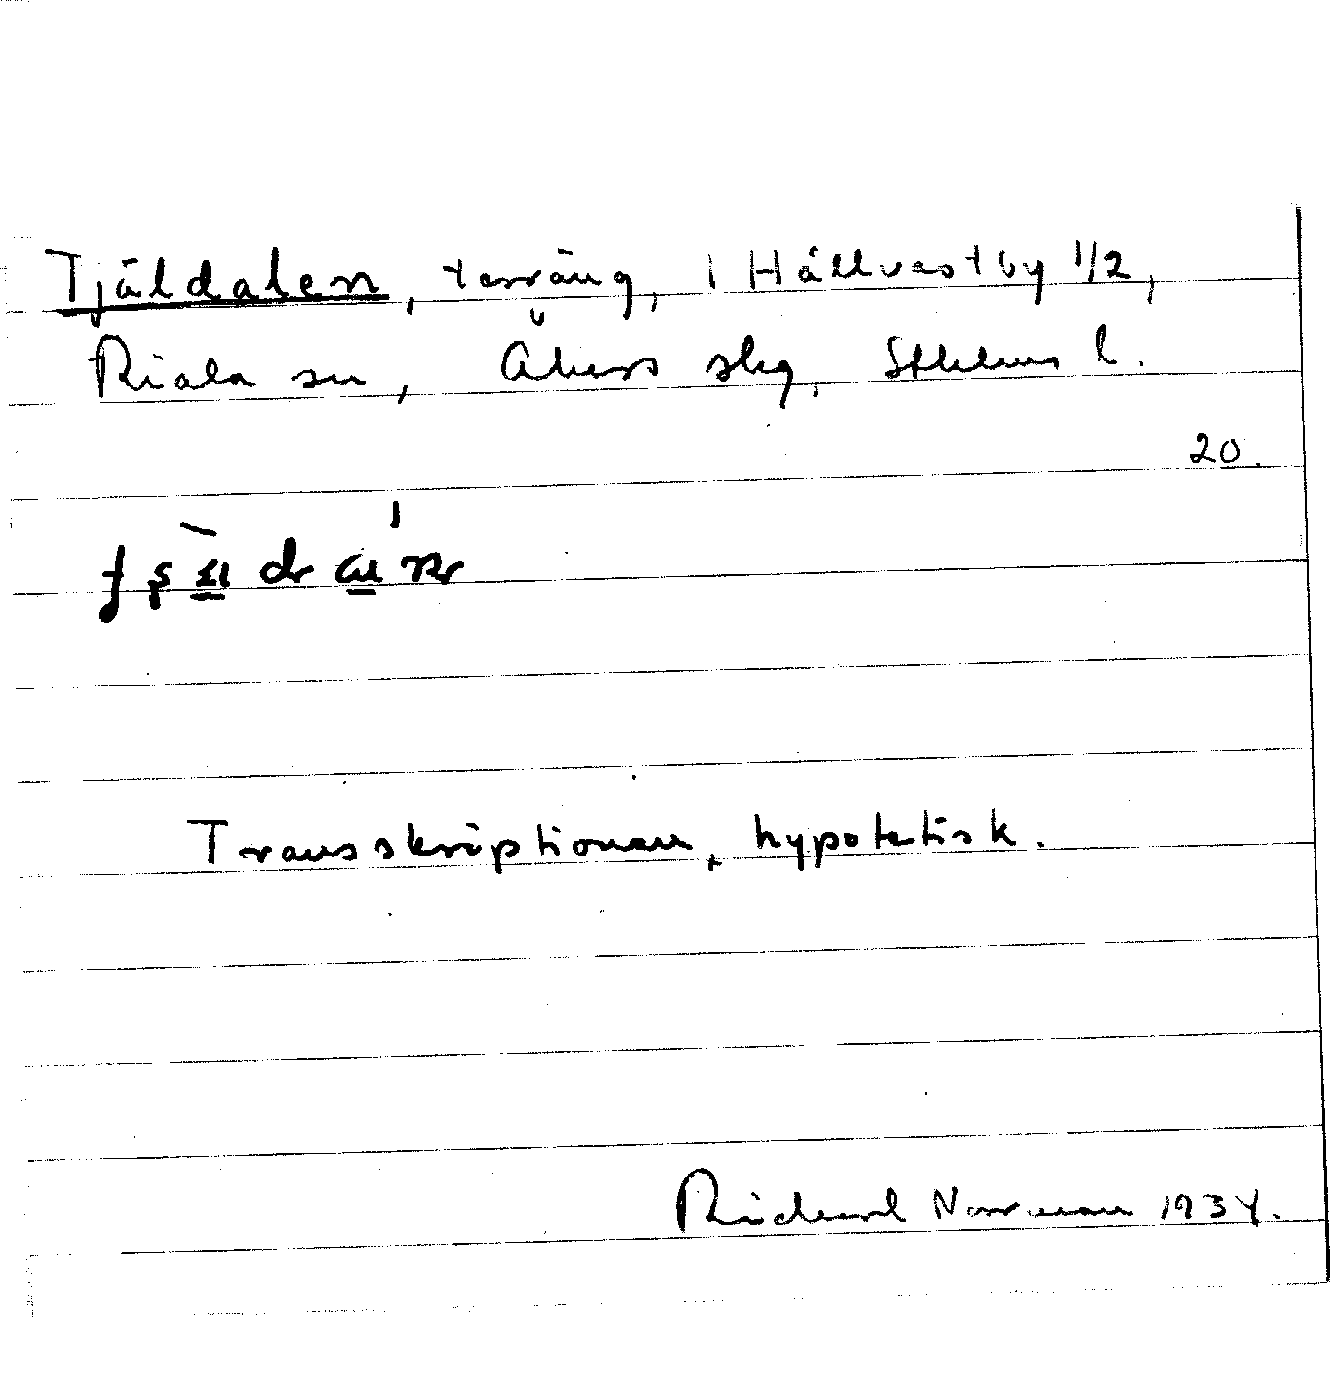 Tjäldalen, terräng, i Hållvastby 1/2,
Riala sn, Åkers skg, Sthlms l.
20.
Transskriptionen, hypotetisk.
Rickard Norrman 1934.